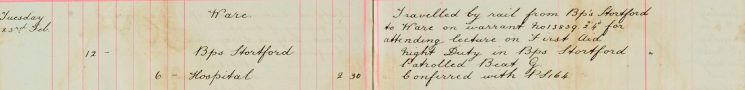 Tuesday Ware. Travelled by rail from Bp's Stortford
23rd Feb. to Ware on warrant for
attending lecture on First Aid
12 - Bps Stortford Night Duty in Bps Stortford "
Patrolled Beat G.
6 - Hospital 2 30 Conferred with PS164